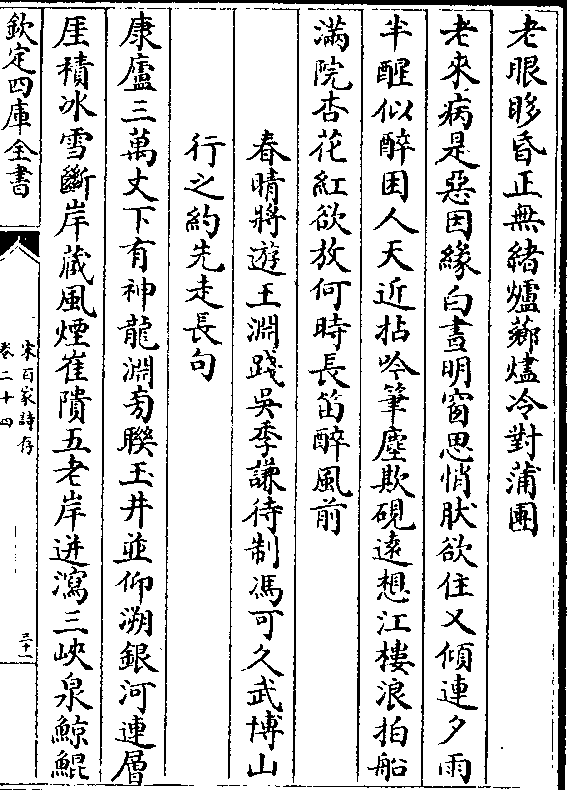 老眼眵昏正無緒爐薌燼冷對蒲團
老來病是惡因緣白晝明窗思悄肰欲住又傾連夕雨
半醒似醉困人天近拈吟筆塵欺硯遠想江樓浪拍船
滿院杏花紅欲放何時長笛醉風前
春晴將遊玉淵踐吳季謙待制馮可久武博山
行之約先走長句
康廬三萬丈下有神龍淵旁聨玉井並仰溯銀河連層
厓積冰雪斷岸蔵風煙崔隤五老岸迸瀉三峽泉鯨鯤
欽定四庫全書
宋百家詩存
卷二十四
三十一